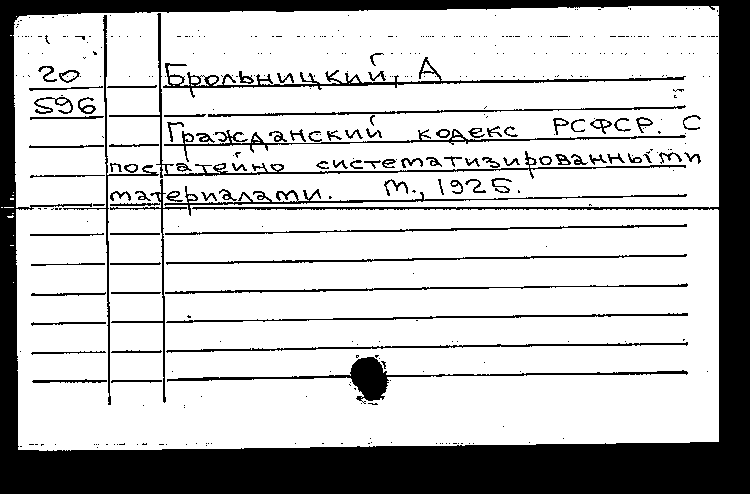 20 Брольницкий, А
596
Гражданский кодекс РСФСР. С
постатейно систематизированными
материалами. М., 1925.